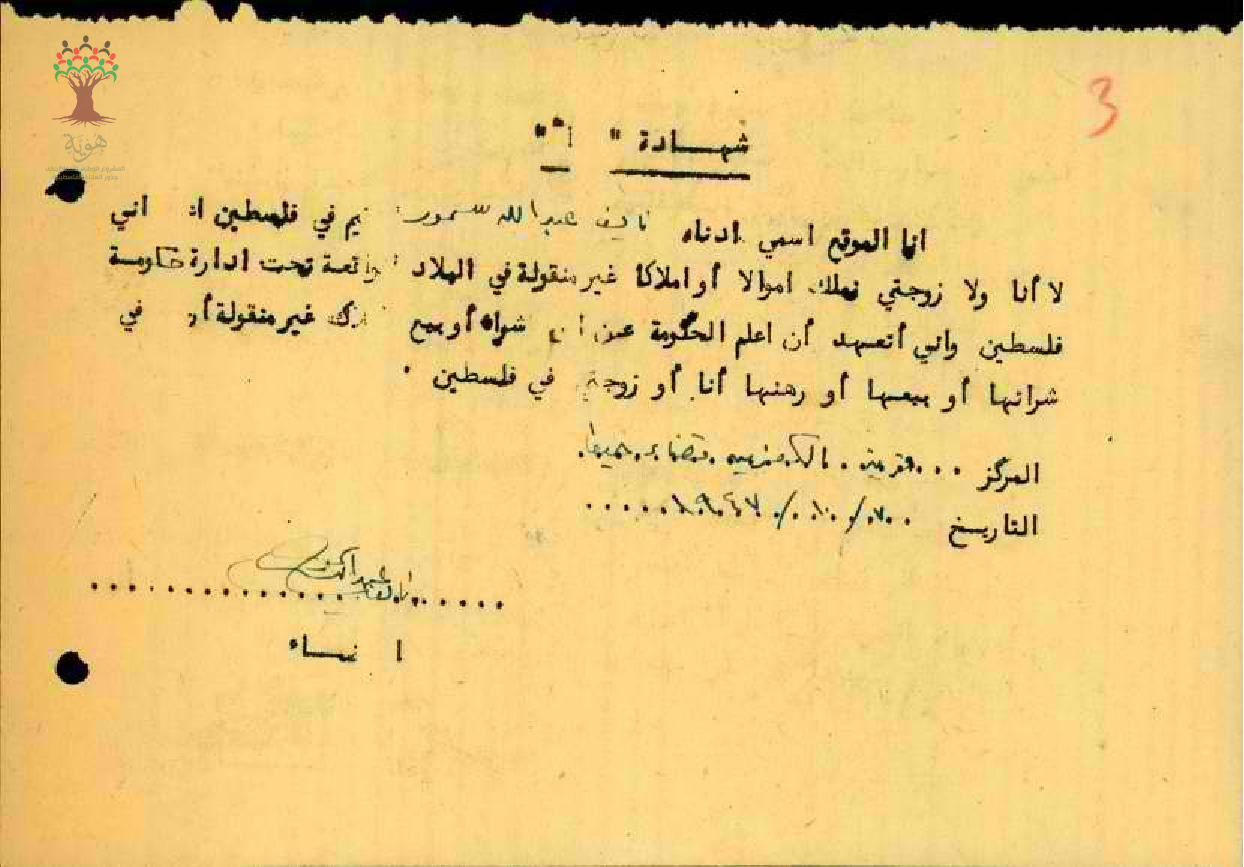 3
هوية
شهادة " أ "
انا الموقع اسمي ادناه نايف عبد الله سمور في فلسطين اني
لا أنا ولا زوجتي نملك اموالا أو املاكا غير منقولة في البلاد تحت ادارة حكومة
فلسطين واني أتعهد أن اعلم الحكومة عن شراء أو بيع غير منقولة في
شرائها أو بيعها أو رهنها أنا أو زوجتي في فلسطين .
المركز ... قرية . الكفرين . قضاء . حيفا .
التاريخ ٧ / ١٠ / ١٩٤٧ .....
نايف عبد الله